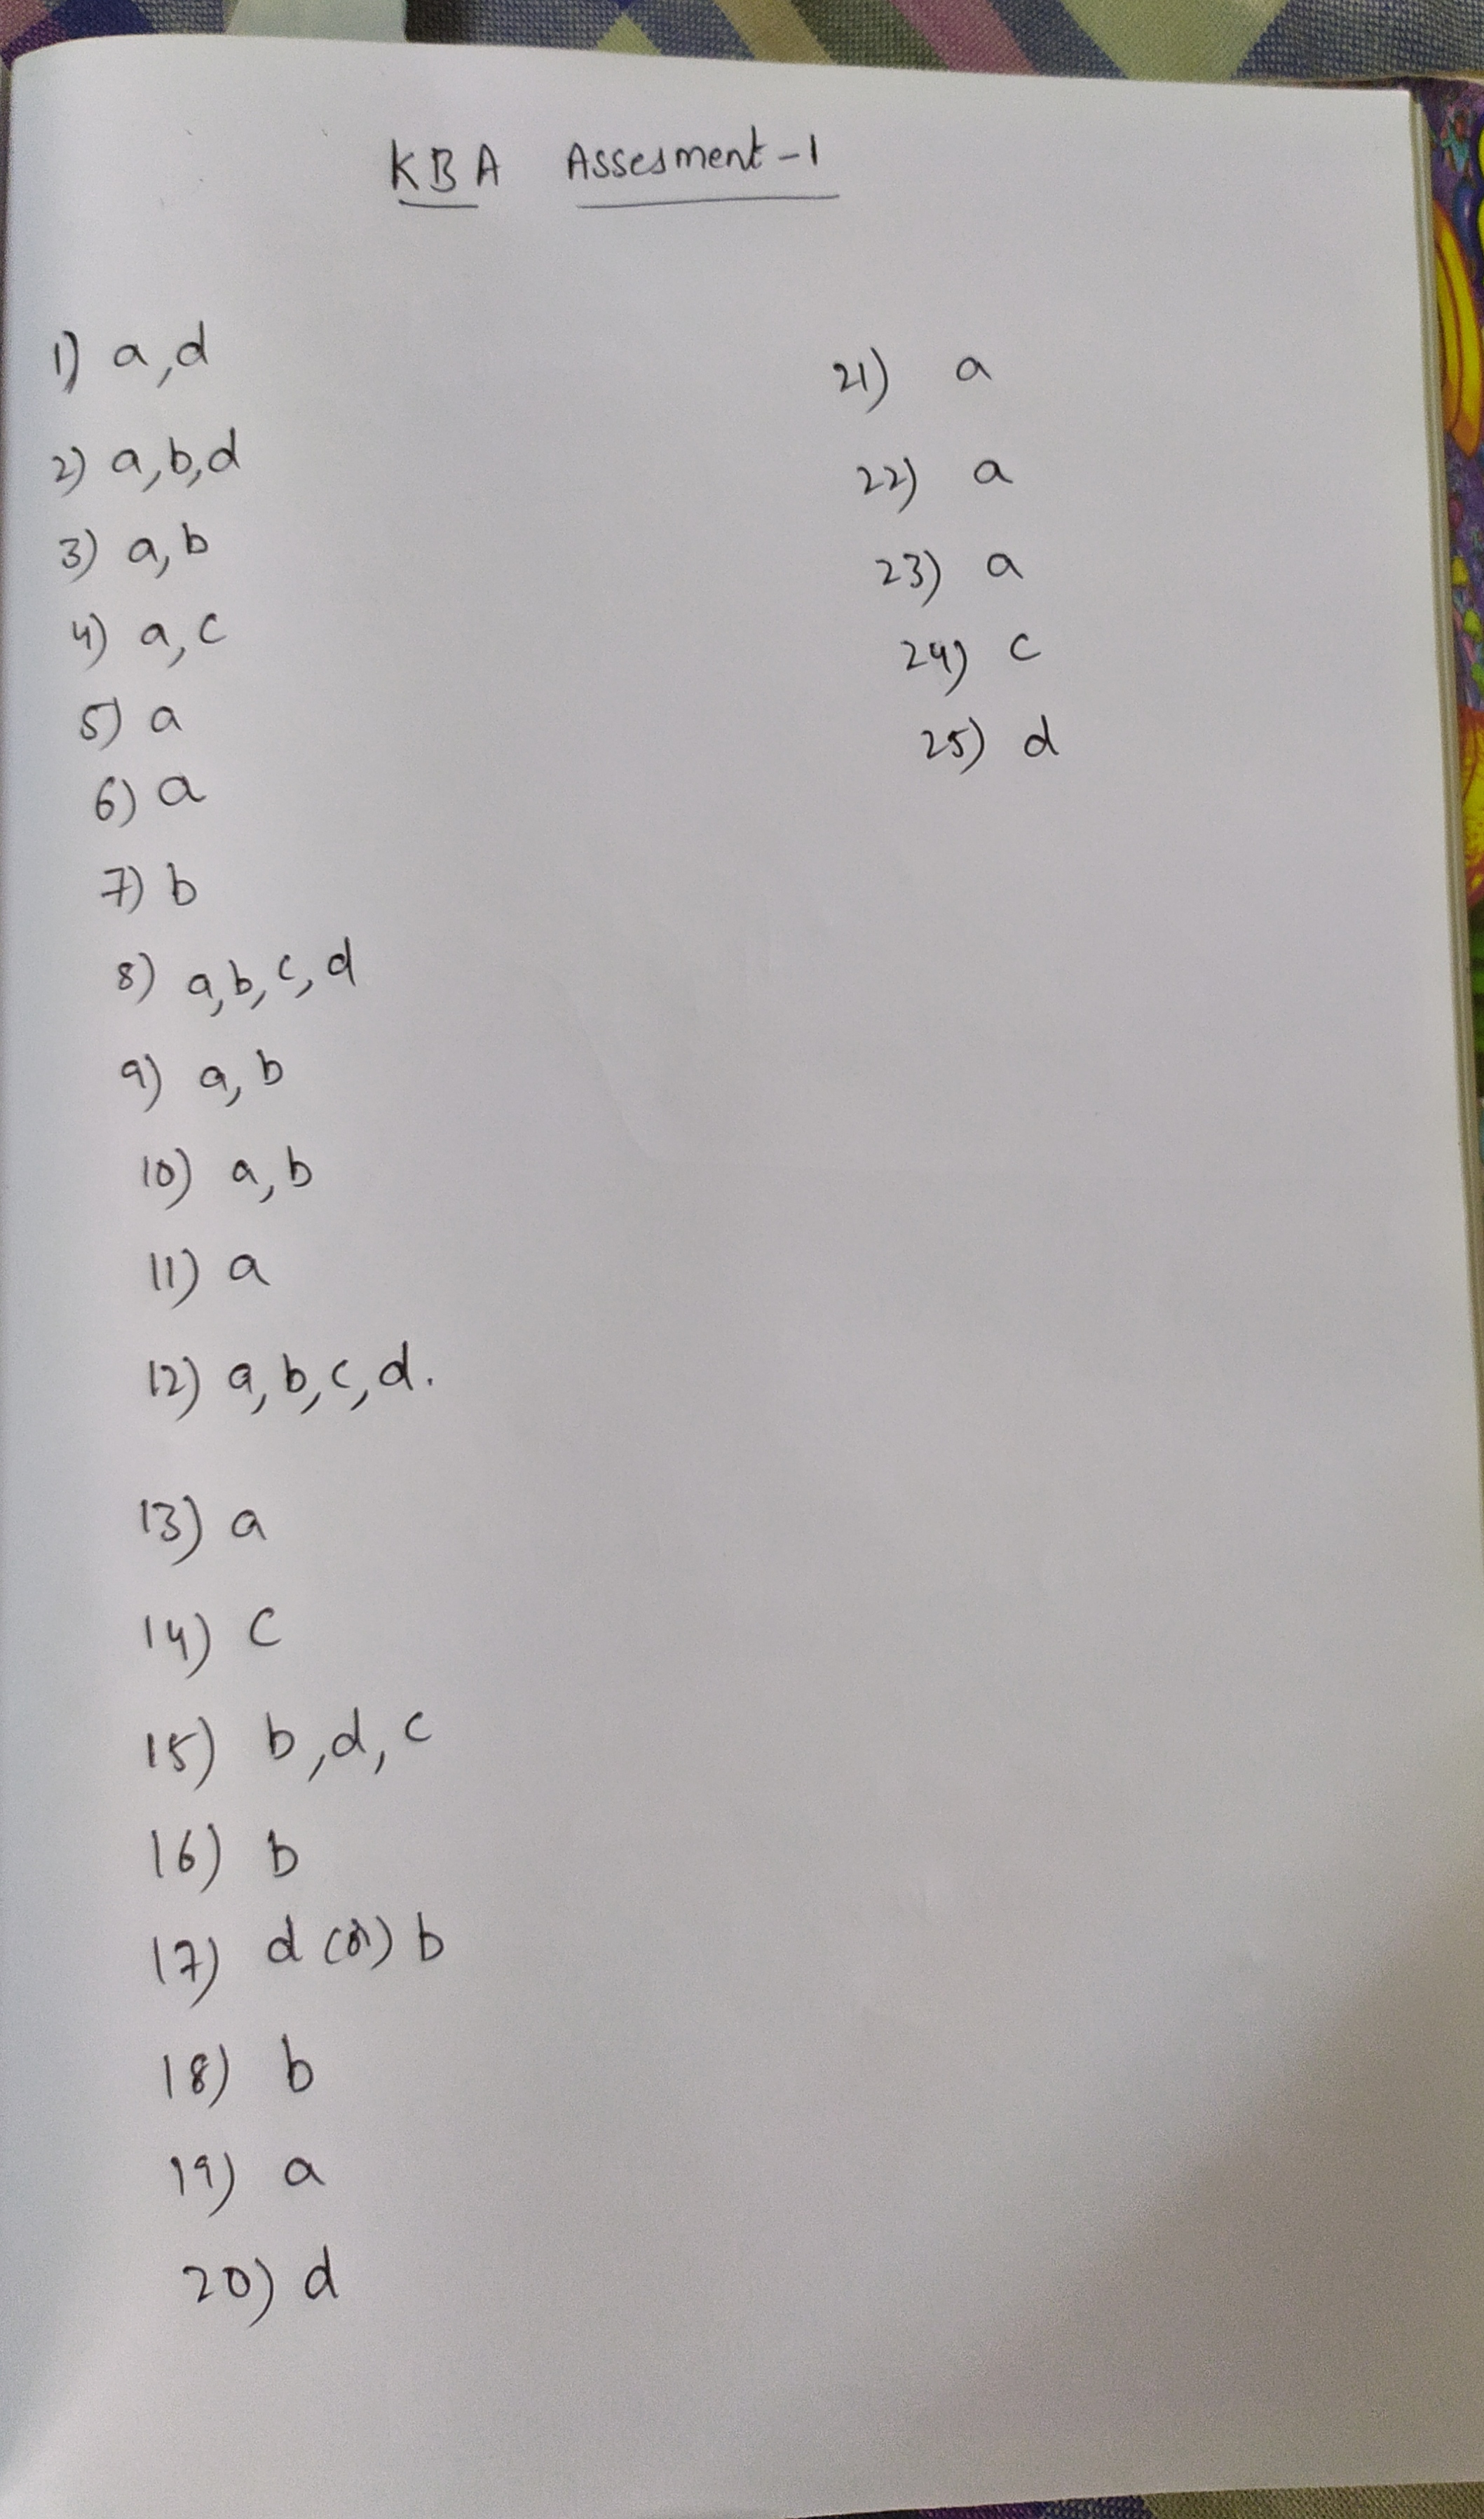 KBA Assesment-1
1) a,d
2) a,b,d
3) a,b
4) a,c
5) a
6) a
7) b
8) a,b,c,d
9) a,b
10) a,b
11) a
12) a,b,c,d.
13) a
14) c
15) b,d,c
16) b
17) d (or) b
18) b
19) a
20) d
21) a
22) a
23) a
24) c
25) d